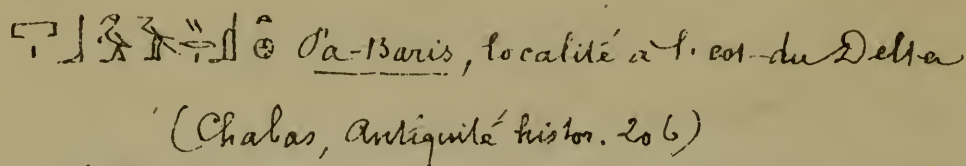 Pa-Baris, localité à l'est du Delta
(Chabas, Antiquité histor. 206)